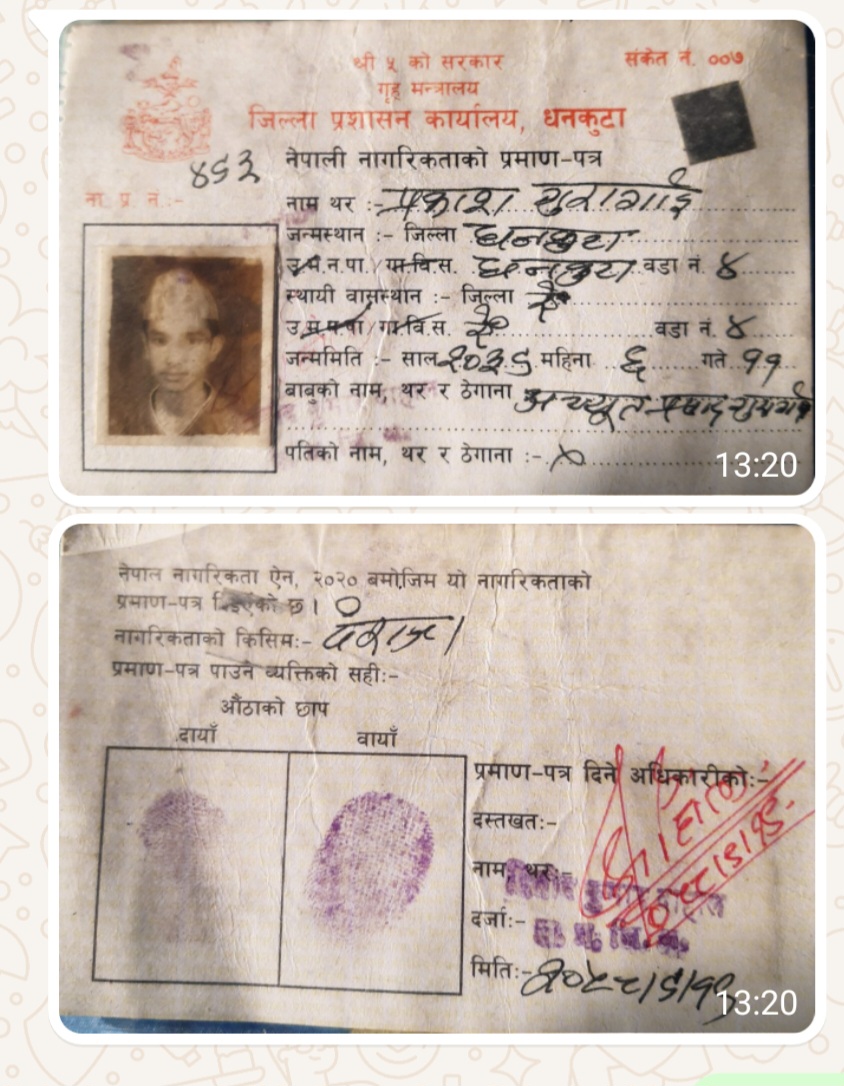 श्री ५ को सरकार
संकेत नं. ००७
गृह मन्त्रालय
जिल्ला प्रशासन कार्यालय, धनकुटा
नेपाली नागरिकताको प्रमाण-पत्र
ना प्र नं:-
नाम थर :- प्रकाश
जन्मस्थान :- जिल्ला धनकुटा
उ.म.न.पा./गा.वि.स. धनकुटा वडा नं. ४
स्थायी वासस्थान :- जिल्ला ऐ
उ.म.न.पा/गा.वि.स. ऐ वडा नं. ४
जन्ममिति :- साल महिना ६ गते ११
बाबुको नाम, थर र ठेगाना अच्यूत प्रसाद
पतिको नाम, थर र ठेगाना :- x
13:20
नेपाल नागरिकता ऐन, २०२० बमोजिम यो नागरिकताको
प्रमाण-पत्र दिइएको छ।
नागरिकताको किसिम:- वंशज
प्रमाण-पत्र पाउने व्यक्तिको सही:-
औंठाको छाप
दायाँ
वायाँ
प्रमाण-पत्र दिने अधिकारीको:-
दस्तखत:-
नाम, थर:-
दर्जा:-
मिति:-
13:20